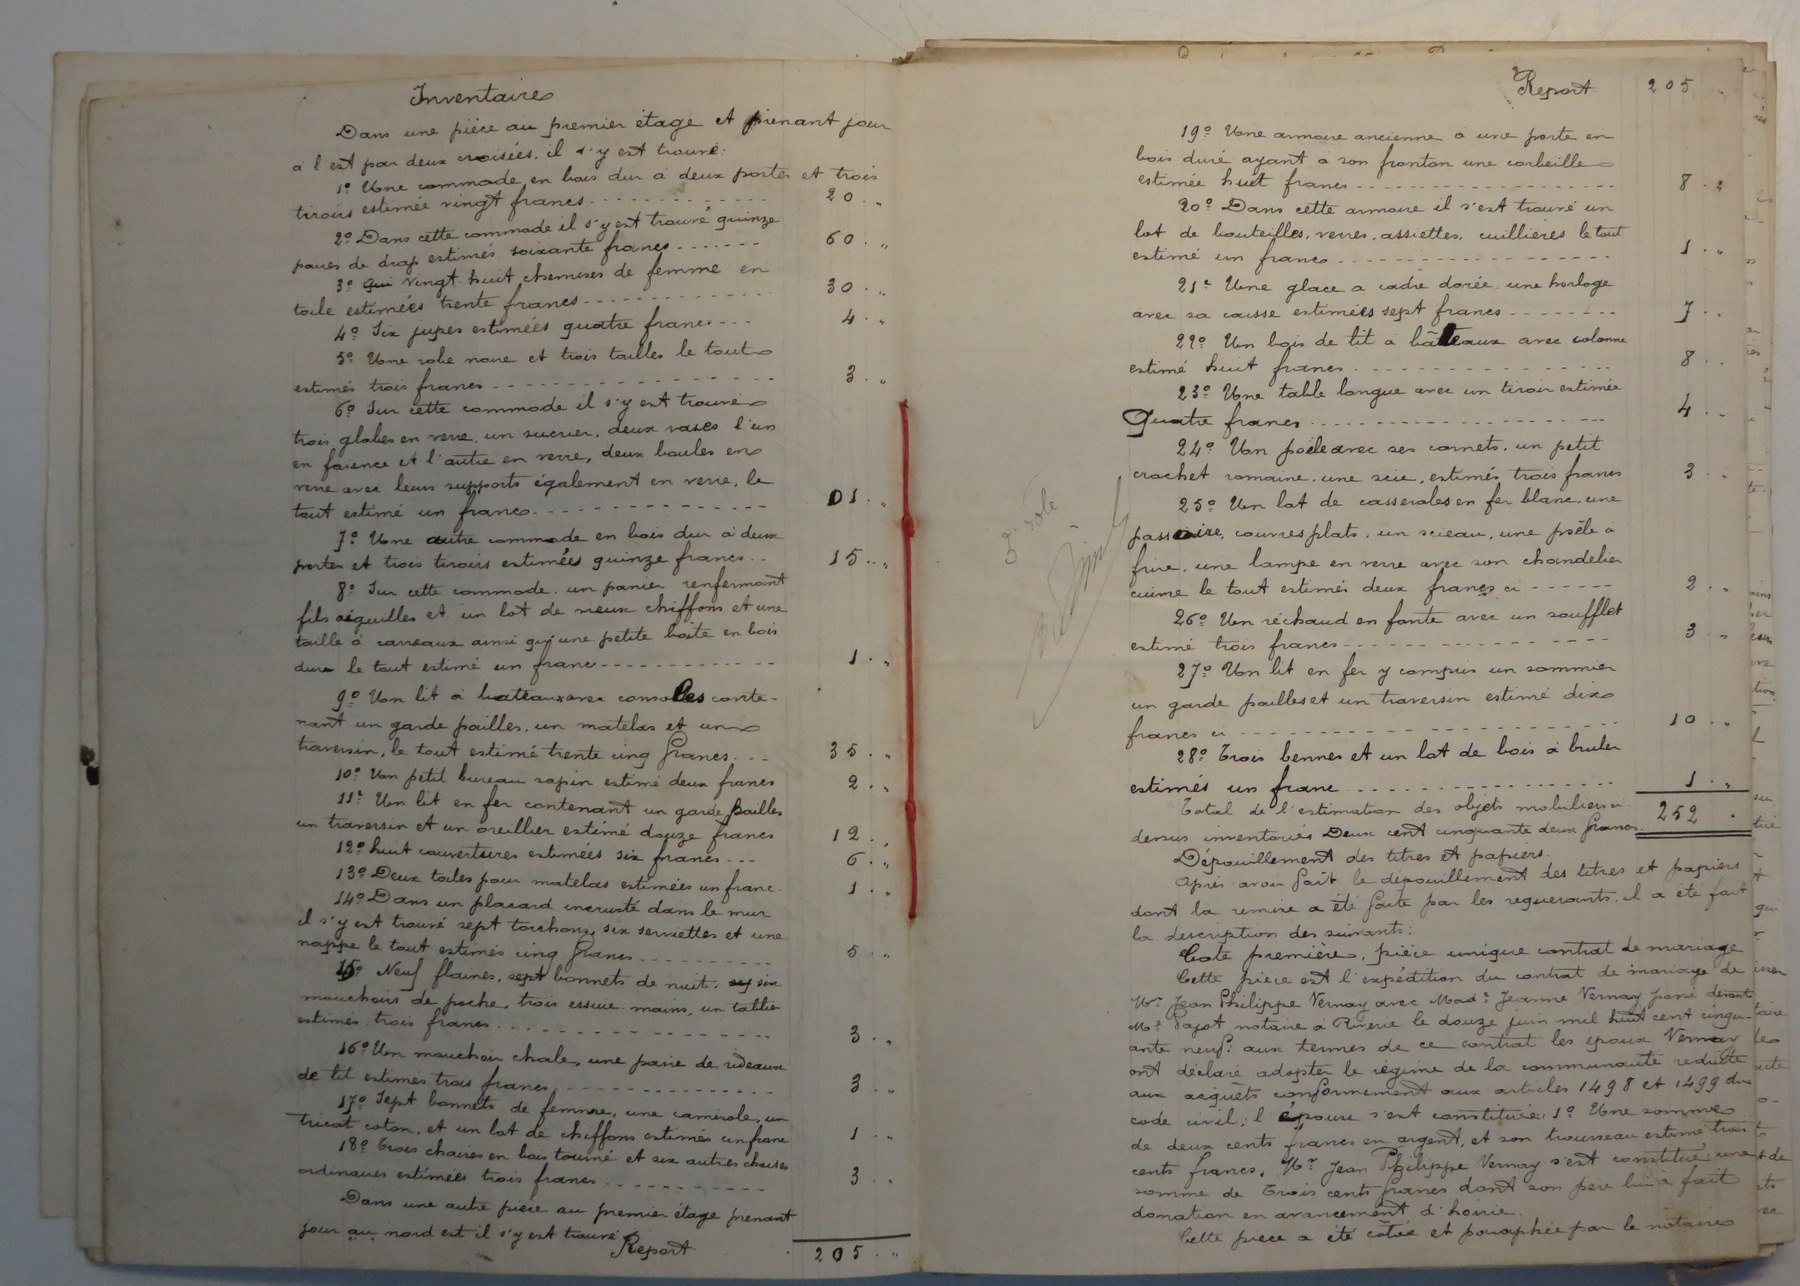 Inventaire
Dans une pièce au premier étage et prenant jour
a l'est par deux croisées, il s'y est trouvé:
1º Une commode en bois dur à deux portes et trois
tiroirs estimée vingt francs 20 "
2º Dans cette commode il s'y est trouvé quinze
paires de drap estimés soixante francs 60 "
3º qui vingt huit chemises de femme en
toile estimées trente francs 30 "
4º Six jupes estimées quatre francs 4 "
5º Une robe noire et trois tailles le tout
estimés trois francs 3 "
6º Sur cette commode il s'y est trouvé
trois globes en verre, un sucrier, deux vases l'un
en faience et l'autre en verre, deux boules en
verre avec leurs supports également en verre, le
tout estimé un franc 01 "
7º Une autre commode en bois dur à deux
portes et trois tiroirs estimées quinze francs 15 "
8º Sur cette commode, un panier renfermant
fils aiguilles et un lot de vieux chiffons et une
taille à carreaux ainsi qu'une petite boite en bois
dur le tout estimé un franc 1 "
9º Un lit à bateaux avec consoles conte-
nant un garde pailles, un matelas et un
traversin, le tout estimé trente cinq francs 35 "
10º Un petit bureau sapin estimé deux francs 2 "
11º Un lit en fer contenant un garde pailles
un traversin et un oreillier estimé douze francs 12 "
12º huit couvertures estimées six francs 6 "
13º Deux toiles pour matelas estimées un franc 1 "
14º Dans un placard incrusté dans le mur
il s'y est trouvé sept torchons, six serviettes et une
nappe le tout estimés cinq francs 5 "
15º Neuf flaines, sept bonnets de nuit, six
mouchoirs de poche, trois essuie-mains, un tablier
estimés trois francs 3 "
16º Un mouchoir chale, une paire de rideaux
de lit estimés trois francs 3 "
17º Sept bonnets de femme, une camisole, un
tricot coton, et un lot de chiffons estimés un franc 1 "
18º Trois chaises en bois tourné et six autres chaises
ordinaires estimées trois francs 3 "
Dans une autre pièce au premier étage prenant
jour au nord est il s'y est trouvé
Report 205 "
Report 205 "
19º Une armoire ancienne à une porte en
bois duré ayant a son fronton une corbeille
estimée huit francs 8 "
20º Dans cette armoire il s'est trouvé un
lot de bouteilles, verres, assiettes, cuillières le tout
estimé un franc 1 "
21º Une glace a cadre dorée une horloge
avec sa caisse estimées sept francs 7 "
22º Un bois de lit a bâteaux avec colonne
estimé huit francs 8 "
23º Une table longue avec un tiroir estimée
Quatre francs 4 "
24º Un poêle avec ses cornets, un petit
crochet romaine, une scie, estimés trois francs 3 "
25º Un lot de casseroles en fer blanc, une
passoire, couvres plats, un sceau, une poêle a
frire, une lampe en verre avec son chandelier
cuivre le tout estimés deux francs ci 2 "
26º Un réchaud en fonte avec un soufflet
estimé trois francs 3 "
27º Un lit en fer y compris un sommier
un garde pailles et un traversin estimé dix
francs ci 10 "
28º Trois bennes et un lot de bois à bruler
estimés un franc 1 "
Total de l'estimation des objets mobiliers ci
dessus inventoriés Deux cent cinquante deux francs. 252
Dépouillement des titres et papiers.
Après avoir fait le dépouillement des titres et papiers
dont la remise a été faite par les requerants, il a été fait
la description des suivants:
Cote première, pièce unique contrat de mariage
Cette pièce est l'expédition du contrat de mariage de
Mr Jean Philippe Vernay avec Made Jeanne Vernay passé devant
Me Pajot notaire à Riverie le douze juin mil huit cent cinqu-
ante neuf: aux termes de ce contrat les époux Vernay
ont déclaré adopter le régime de la communauté reduite
aux acquêts conformement aux articles 1498 et 1499 du
code civil; l'épouse s'est constituée: 1º Une somme
de deux cents francs en argent, et son trousseau estimé trois
cents francs. Mr Jean Philippe Vernay s'est constitué une
somme de Trois cents francs dont son père lui a fait
donation en avancement d'hoirie.
Cette pièce a été cotée et paraphée par le notaire